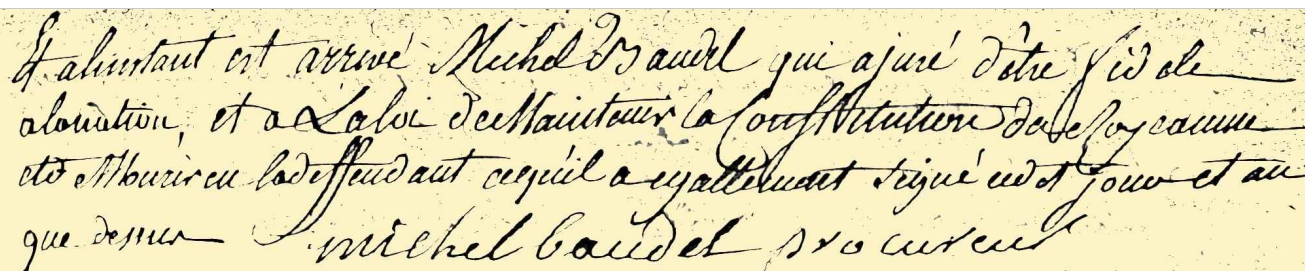 Et alinstant est arrivé Michel Baudel qui ajuré d'être fidele
alanation, et a Laloi deMaintenir la Constitution du Royeaume
et de Mourir en ladeffendant cequil a egallement signé cedit jour et an
que dessus michel baudel procureur